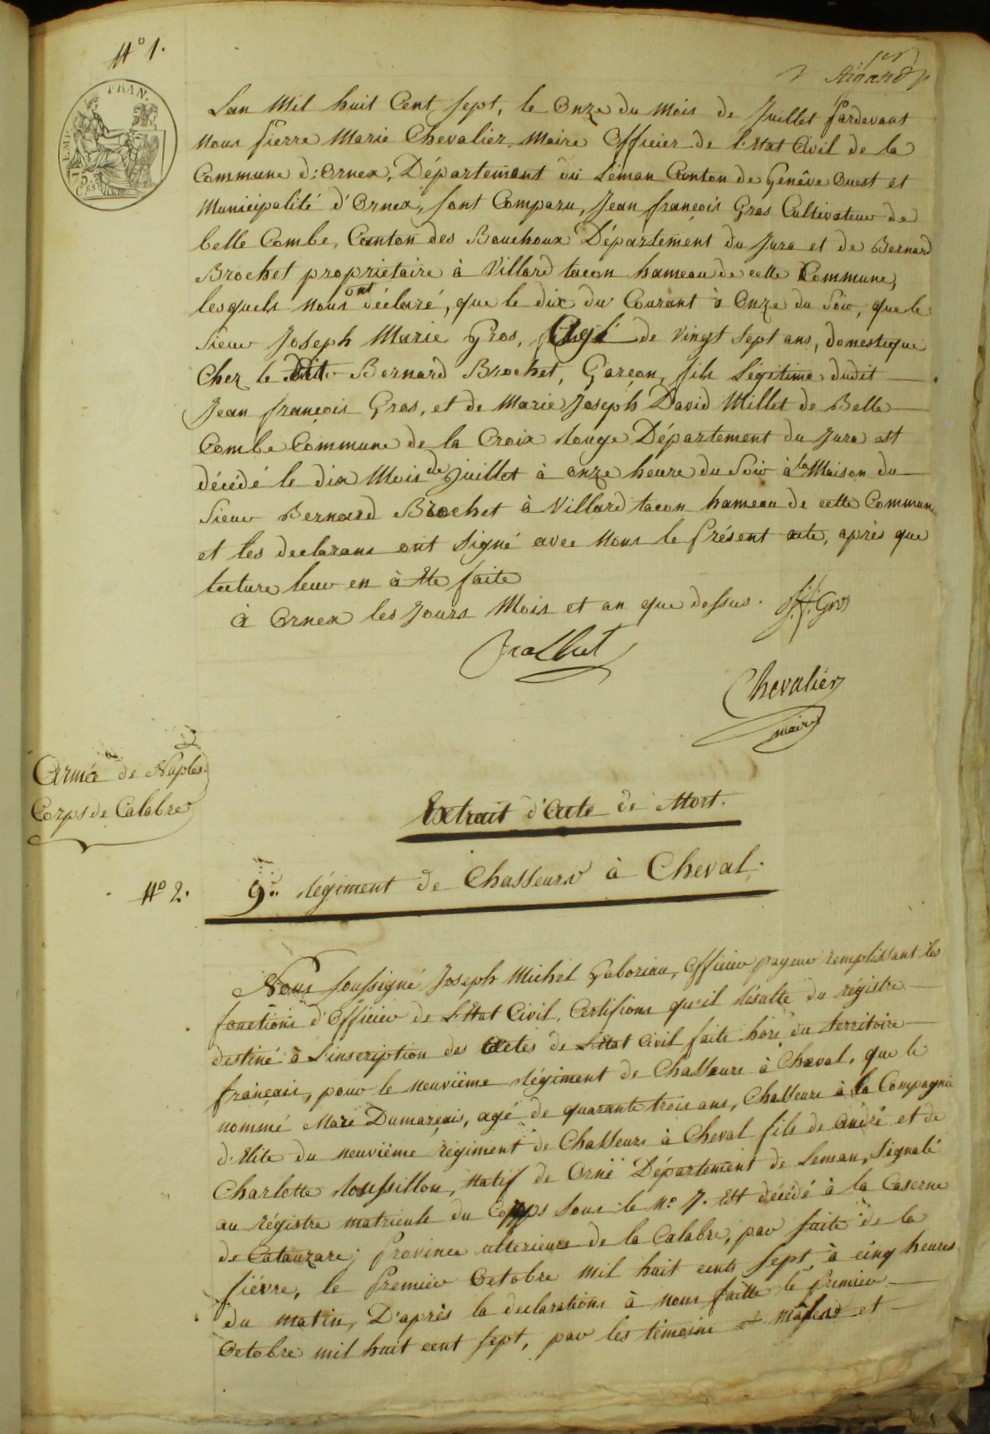 N° 1.
EMP. FRAN.
75
CEN
Rigard
Lan Mil huit Cent sept, le Onze du Mois de Juillet Pardevant
Nous Pierre Marie Chevalier, Maire Officier de l'Etat Civil de la
Commune d'Ornex, Département du Léman Canton de Genêve Ouest et
Municipalité d'Ornex, sont Comparu, Jean françois Gros Cultivateur de
belle Combe, Canton des Bouchoux Département du Jura et de Bernard
Brochet propriétaire à Villard tacon hameau de cette Commune,
lesquels Nous ont déclaré, que le dix du Courant à Onze du Soir, que le
Sieur Joseph Marie Gros, Agé de vingt sept ans, domestique
Chez le Dit Bernard Brochet, Garçon, fils Legitime dudit
Jean françois Gros, et de Marie Joseph David Millet de Belle
Combe Commune de la Croix Rouge Département du Jura est
décédé le dix Mois de Juillet à onze heure du Soir à la Maison du
Sieur Bernard Brochet à Villard tacon hameau de cette Commune
et les declarans ont signé avec Nous le Présent acte, après que
lecture leur en à Eté faite
à Ornex les Jours Mois et an que dessus. J. f. Gros
Brochet
Chevalier
maire
Armée de Naples
Corps de Calabre
Extrait d'Acte de Mort.
N° 2.
9me Régiment de Chasseurs à Cheval.
Nous soussigné, Joseph Michel Gaboriau, officier payeur remplissant les
fonctions d'Officier de l'Etat Civil, Certifions qu'il résulte du régistre
destiné à l'inscription des Actes de l'Etat Civil faits hors du territoire
français, pour le neuvième Régiment de Chasseurs à Cheval, que le
nommé Marc Dumarçais, agé de quarante trois ans, Chasseurs à la Compagnie
d'Elite du neuvième régiment de Chasseurs à Cheval fils de André et de
Charlotte Roussillon, Natif de Orné Département de Leman, Signalé
au régistre matricule du Corps sous le N° 7. Est décédé à la Caserne
de Catanzare, Province ulterieure de la Calabre, par suite de la
fièvre, le Premier Octobre mil huit cents sept, à cinq heures
du matin, D'après la declarations à nous faitte le Premier
Octobre mil huit cent sept, par les témoins et